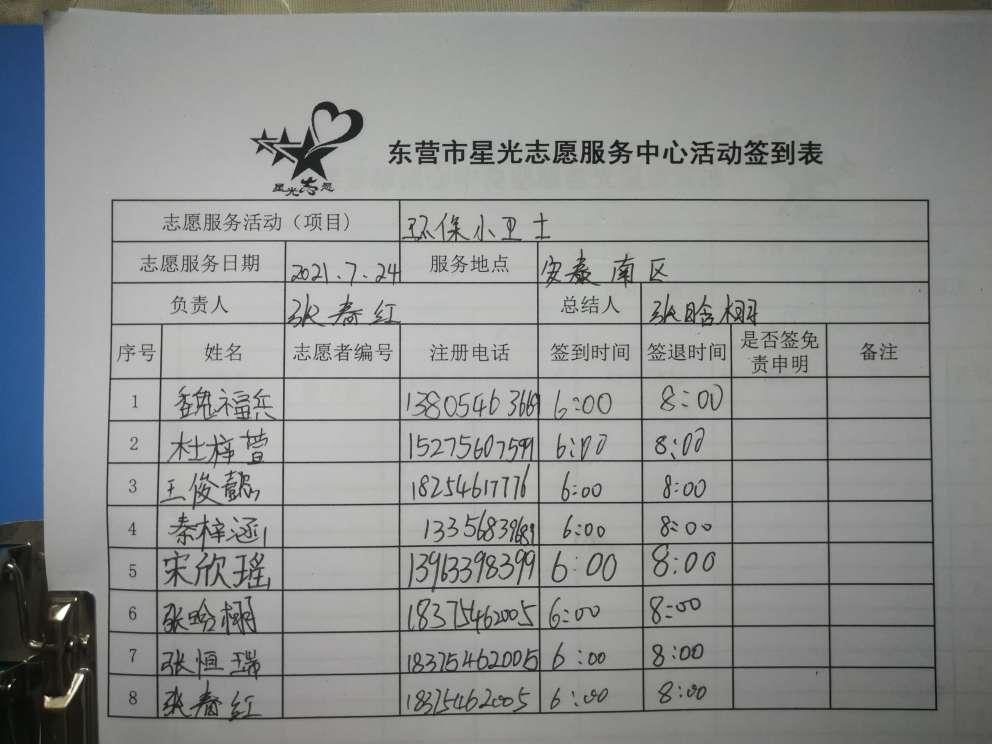 星光志愿
东营市星光志愿服务中心活动签到表
志愿服务活动（项目） 环保小卫士
志愿服务日期 2021.7.24 服务地点 安泰南区
负责人 张春红 总结人 张晗栩
序号 姓名 志愿者编号 注册电话 签到时间 签退时间 是否签免责申明 备注
1 魏福兵 13805463669 6:00 8:00
2 杜梓萱 15275607599 6:00 8:00
3 王俊懿 18254617776 6:00 8:00
4 秦梓涵 13356839689 6:00 8:00
5 宋欣瑶 13963398399 6:00 8:00
6 张晗栩 18375462005 6:00 8:00
7 张恒瑞 18375462005 6:00 8:00
8 张春红 18375462005 6:00 8:00